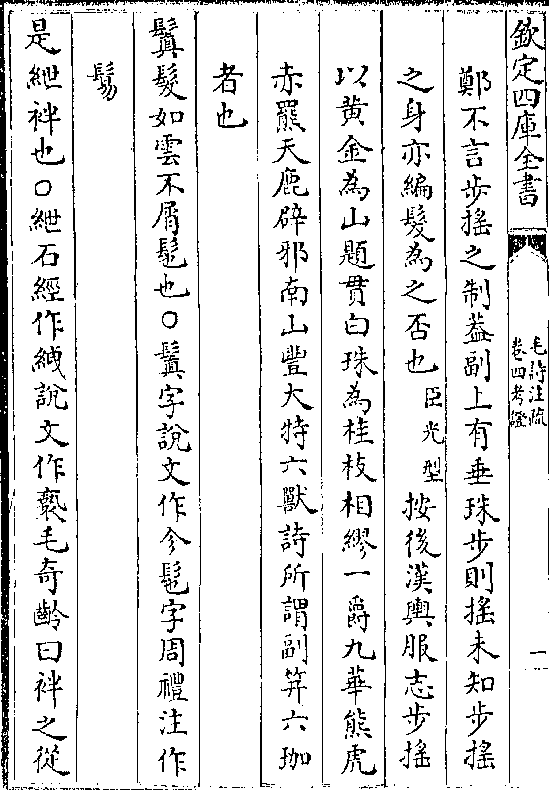 欽定四庫全書
毛詩注疏
卷四考證
一
鄭不言步搖之制葢副上有垂珠步則搖未知步搖
之身亦編髮為之否也臣光型按後漢輿服志步搖
以黄金為山題貫白珠為桂枝相繆一爵九華熊虎
赤羆天鹿辟邪南山豐大特六獸詩所謂副笄六珈
者也
鬒髮如雲不屑髢也○鬒字說文作㐱髢字周禮注作
鬄
是紲袢也○紲石經作絏說文作褻毛奇齡曰袢之從